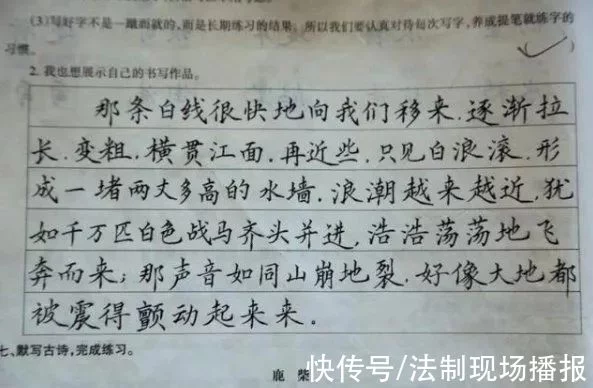 (3)写好字不是一蹴而就的,而是长期练习的结果。所以我们要认真对待每次写字,养成提笔就练字的
习惯。 (✓)
2. 我也想展示自己的书写作品。
那条白线很快地向我们移来,逐渐拉
长,变粗,横贯江面,再近些,只见白浪滚,形
成一堵两丈多高的水墙。浪潮越来越近,犹
如千万匹白色战马齐头并进,浩浩荡荡地飞
奔而来;那声音如同山崩地裂,好像大地都
被震得颤动起来来。
七、默写古诗,完成练习。
鹿 柴
快传号/法制现场播报